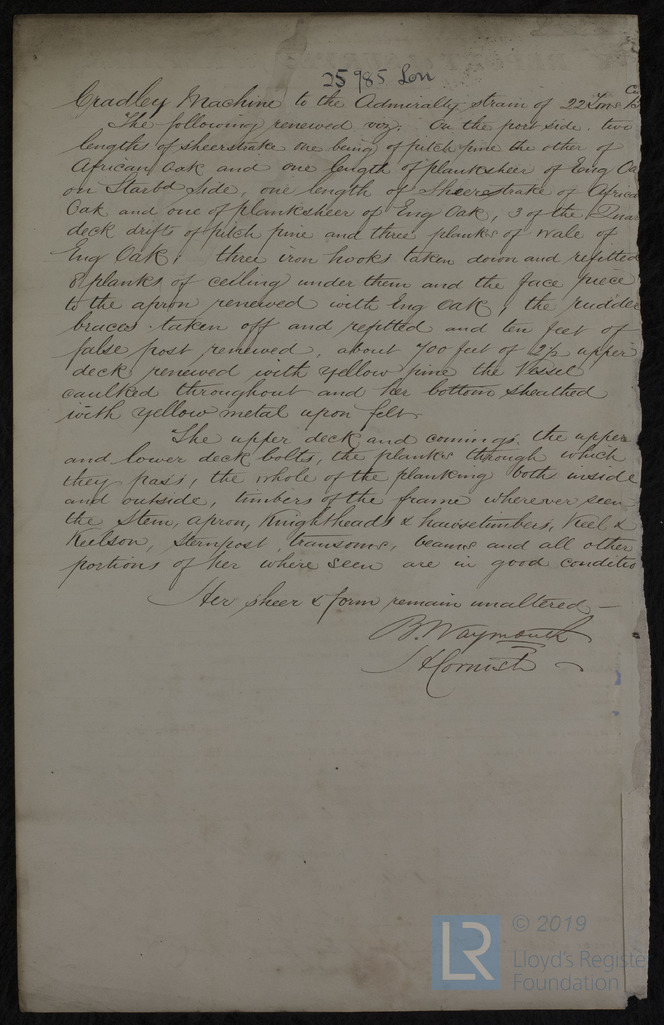 25985 Lon
Cradley Machine to the Admiralty strain of 22 Tons
The following renewed viz: On the port side. two
lengths of sheerstrake one being of pitch pine the other of
African Oak and one length of planksheer of Eng Oa
on Starbd Side, one length of Sheerstrake of Africa
Oak and one of planksheer of Eng Oak, 3 of the Quar
deck drifts of pitch pine and three planks of wale of
Eng Oak; three iron hooks taken down and refitted
8 planks of ceiling under them and the face piece
to the apron renewed with Eng Oak, the rudder
braces taken off and refitted and ten feet of
false post renewed, about 700 feet of 2½ upper
deck renewed with yellow pine the Vessel
caulked throughout and her bottom sheathed
with yellow metal upon felt.
The upper deck and comings, the upper
and lower deck bolts, the planks through which
they pass, the whole of the planking both inside
and outside, timbers of the frame wherever seen
the Stem, apron, Knightheads & hawsetimbers, Keel &
Keelson, Sternpost, transoms, beams and all other
portions of her where seen are in good conditio
Her sheer & form remain unaltered —
B. Waymouth
H Cornish
LR
© 2019
Lloyd's Register
Foundation